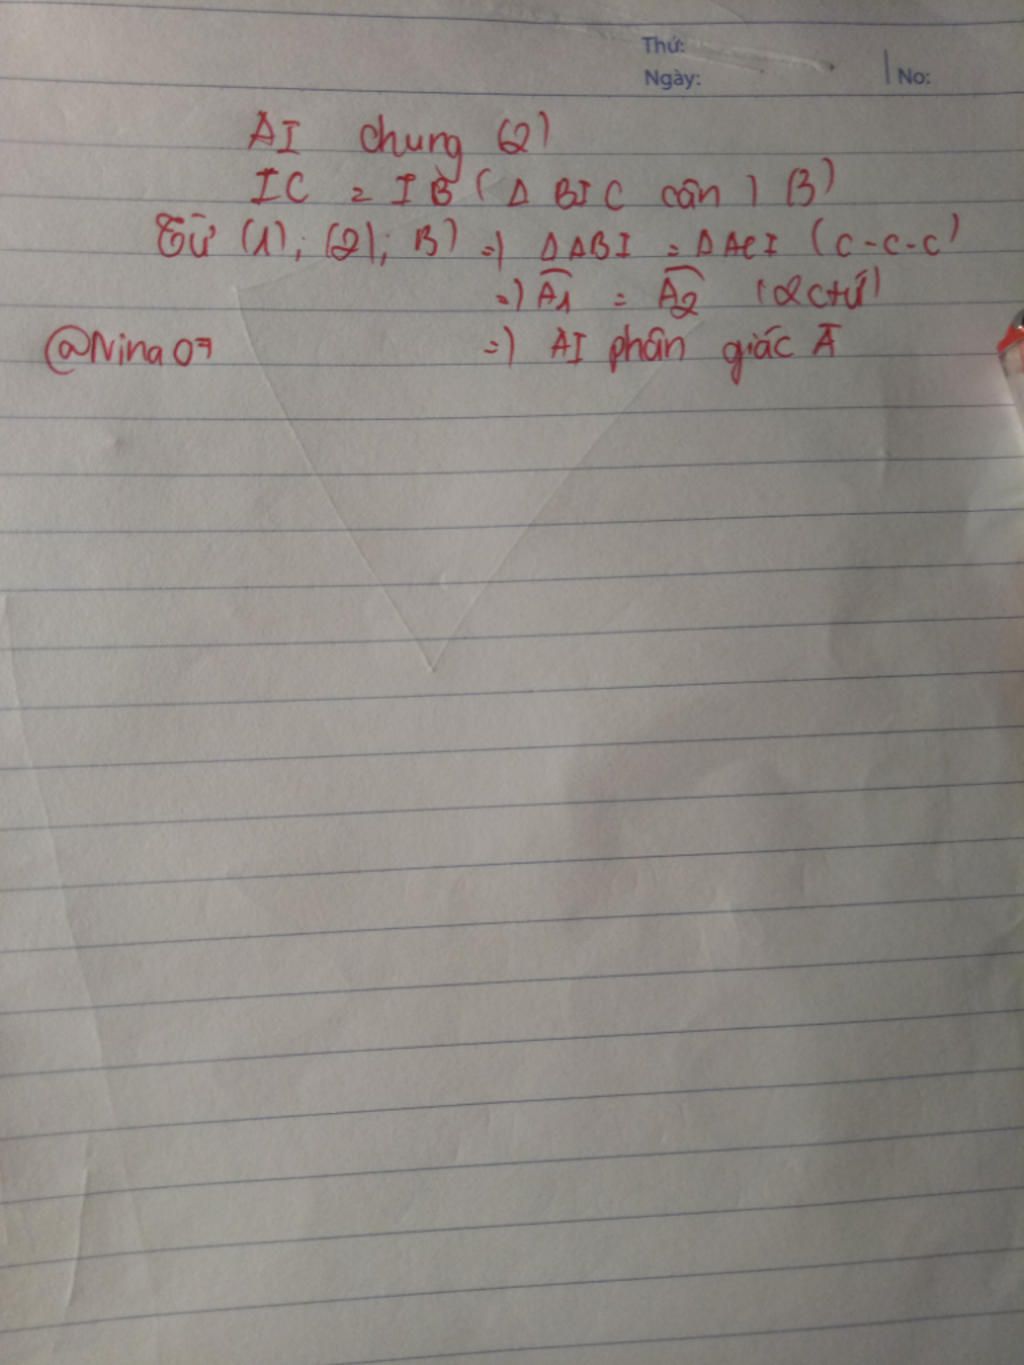 Thứ:
Ngày:
No:
AI chung (2)
IC = IB (Δ BIC cân) (3)
Từ (1); (2); (3) =) ΔABI = ΔACI (c-c-c)
=) Â1 = Â2 (2ctứ)
@Nina07 =) AI phân giác Â